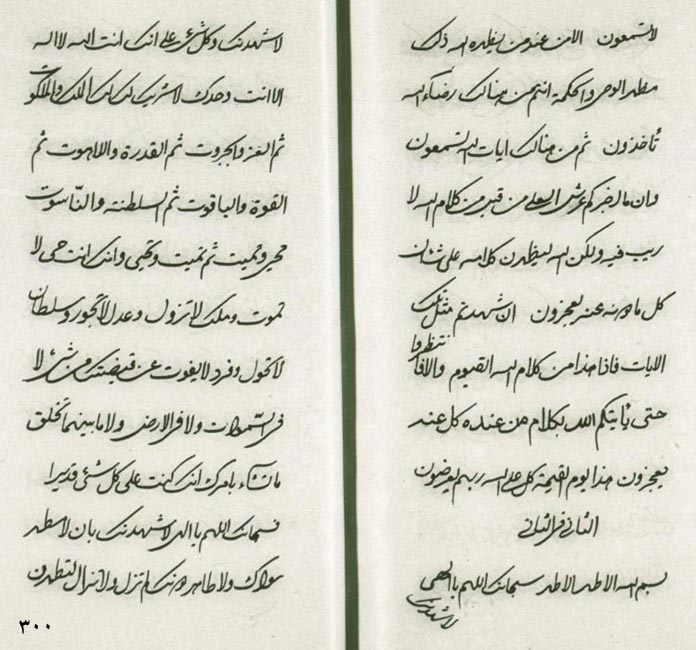 لاتسمعون الا من عند من يظهره الله ذلك
مظهر الوحى والحكمة انتم من هنالك رضاء الله
تأخذون ثم من هنالك ايات الله تسمعون
وان ما لخبركم عرش العلى من قبل من كلام الله لا
ريب فيه ولكن الله ليظهرن كلامه على شأن
كل ما دونه عنه يعجزون ان شهدتم مثل تلك
الايات فاذا هذا من كلام الله القيوم والا فانتظروا
حتى يأتيكم الله بكلام من عنده كل عنه
يعجزون هذا يوم القيمة كل على الله ربهم يعرضون
الثانى فى الثانى
بسم الله الاطهر الاطهر سبحانك اللهم يا الهى
لاشهدنك
لاشهدنك وكل شئ على انك انت الله لا اله
الا انت وحدك لا شريك لك لك الملك والملكوت
ثم العز والجبروت ثم القدرة واللاهوت ثم
القوة والياقوت ثم السلطنة والناسوت
تحيى وتميت ثم تميت وتحيى وانك انت حى لا
تموت وملك لا تزول وعدل لا تجور وسلطان
لا تحول وفرد لا يفوت عن قبضتك من شئ لا
فى السموات ولا فى الارض ولا ما بينهما تخلق
ما تشاء بامرك انك كنت على كل شئ قديرا
فسبحانك اللهم يا الهى لاشهدنك بان لا مطهر
سواك ولا طاهر دونك لم تزل ولا تزال لتطهرن
٣٠٠